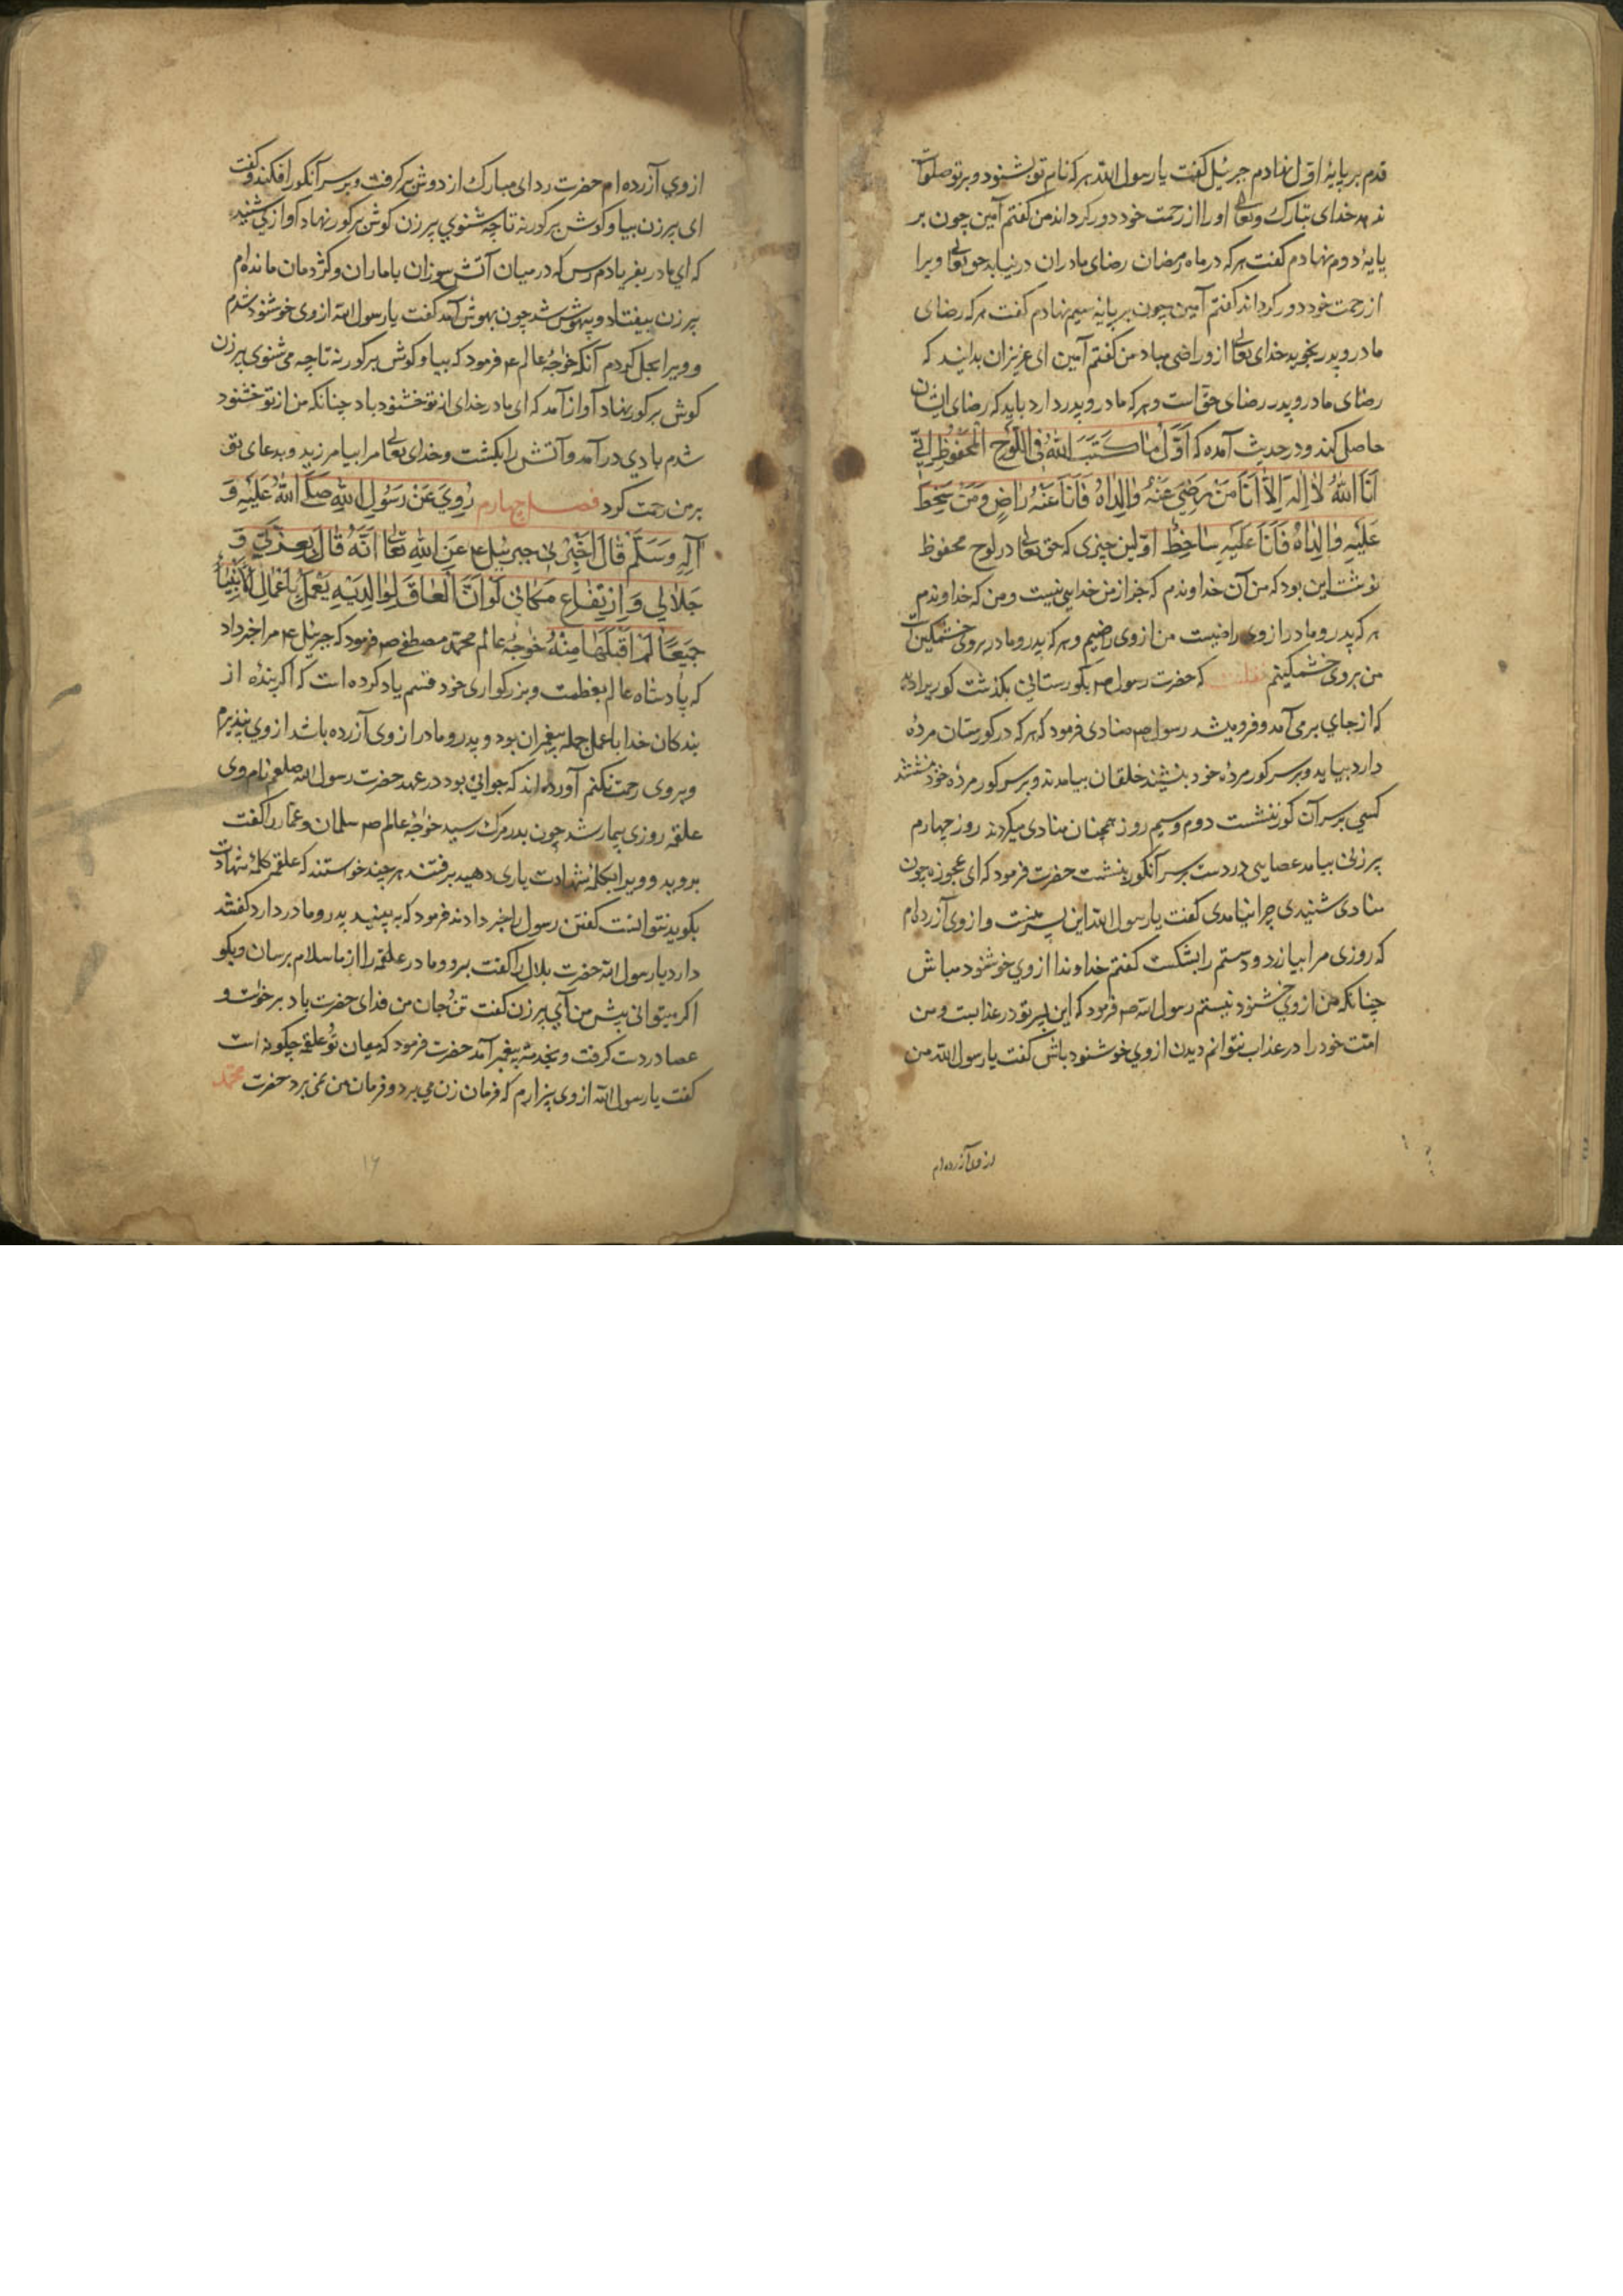 قدم بر پایهٔ اول نهادم جبرئیل گفت یا رسول الله هر که نام تو بشنود و بر تو صلوات
ندهد خدای تبارک و تعالی او را از رحمت خود دور کرداند من گفتم آمین چون بر
پایهٔ دوم نهادم گفت هر که در ماه رمضان رضای مادران در نیابد حق تعالی ویرا
از رحمت خود دور کرداند گفتم آمین چون بر پایهٔ سیم نهادم گفت هر که رضای
مادر و پدر نجوید خدای تعالی ازو راضی مباد من گفتم آمین ای عزیزان بدانید که
رضای مادر و پدر رضای حق است و هر که مادر و پدر دارد باید که رضای ایشان
حاصل کند و در حدیث آمده که اَوَّلُ مٰا کَتَبَ اللّٰهُ فِی اللَّوْحِ الْمَحْفُوظِ اِنّی
اَنَا اللّٰهُ لٰا اِلٰهَ اِلّٰا اَنَا مَنْ رَضِیَ عَنْهُ وٰالِدٰاهُ فَاَنَا عَنْهُ رٰاضٍ وَ مَنْ سَخِطَ
عَلَیْهِ وٰالِدٰاهُ فَاَنَا عَلَیْهِ سٰاخِطٌ اولین چیزی که حق تعالی در لوح محفوظ
نوشت این بود که من آن خداوندم که جز از من خدایی نیست و من که خداوندم
هر که پدر و مادر از وی راضیست من از وی راضیم و هر که پدر و مادر بر وی خشمگین است
من بر وی خشمگینم نقلست که حضرت رسول ص بکورستانی بکذشت کوریرا دید
که از جای بر می آمد و فرو میشد رسول ص منادی فرمود که هر که در کورستان مردهٔ
دارد بیاید و بر سر کور مردهٔ خود بنشیند خلقان بیامدند و بر سر کور مردهٔ خود نشستند
کسی بر سر آن کور ننشست دوم و سیم روز همچنان منادی میکردند روز چهارم
پیرزنی بیامد عصایی در دست بر سر آنکور بنشست حضرت فرمود که ای عجوزه چون
منادی شنیدی چرا نیامدی گفت یا رسول الله این پسر منست و از وی آزرده ام
که روزی مرا بیازرد و دستم را بشکست گفتم خداوندا از وی خوشنود مباش
چنانکه من از وی خشنود نیستم رسول الله ص فرمود که این پسر تو در عذابست و من
امت خود را در عذاب نتوانم دیدن از وی خوشنود باش گفت یا رسول الله من
از وی آزرده ام
از وی آزرده ام حضرت ردای مبارک از دوش بر کرفت و بر سر آنکور افکند و گفت
ای پیرزن بیا و کوش بر کور نه تا چه شنوی پیرزن کوش بر کور نهاد آوازی شنید
که ای مادر بفریادم رس که در میان آتش سوزان با ماران و کژدمان مانده ام
پیرزن بیفتاد و بیهوش شد چون بهوش آمد گفت یا رسول الله از وی خوشنود شدم
و ویرا بحل کردم آنکه خواجهٔ عالم ع م فرمود که بیا و کوش بر کور نه تا چه می شنوی پیرزن
کوش بر کور نهاد آواز آمد که ای مادر خدای از تو خشنود باد چنانکه من از تو خشنود
شدم بادی در آمد و آتش را بکشت و خدای تعالی مرا بیامرزید و بدعای تو
بر من رحمت کرد فصل چهارم رُوِیَ عَنْ رَسُولِ اللّٰهِ صَلَّی اللّٰهُ عَلَیْهِ وَ
آلِهِ وَسَلَّمَ قٰالَ اَخْبَرَنی جبرئیل ع م عَنِ اللّٰهِ تَعٰالی اَنَّهُ قٰالَ بِعِزَّتی وَ
جَلٰالی وَ ارْتِفٰاعِ مَکٰانی لَوْ اَنَّ الْعٰاقَّ لِوٰالِدَیْهِ یَعْمَلُ بِاَعْمٰالِ الْاَنْبِیٰاءِ
جَمیعًا لَمْ اَقْبَلْهٰا مِنْهُ خواجهٔ عالم محمد مصطفی ص فرمود که جبرئیل ع م مرا خبر داد
که پادشاه عالم بعظمت و بزرکواری خود قسم یاد کرده است که اکر بندهٔ از
بندکان خدا با عمل جمله پیغمبران بود و پدر و مادر از وی آزرده باشد از وی نپذیرم
و بر وی رحمت نکنم آورده اند که جوانی بود در عهد حضرت رسول الله صلعم نام وی
علقمه روزی بیمار شد چون بدر مرک رسید خواجهٔ عالم ص سلمان و عمار را گفت
بروید و ویرا بکلمهٔ شهادت یاری دهید برفتند هر چند خواستند که علقمه کلمهٔ شهادت
بکوید نتوانست گفتن رسول را خبر دادند فرمود که به بینید پدر و مادر دارد گفتند
دارد یا رسول الله حضرت بلال را گفت برو و مادر علقمه را از ما سلام برسان و بکو
اکر میتوانی پیش من آی پیرزن گفت تن و جان من فدای حضرت باد برخواست و
عصا در دست کرفت و بخدمت پیغمبر آمد حضرت فرمود که میان تو و علقمه چکونه است
گفت یا رسول الله از وی بیزارم که فرمان زن می برد و فرمان من نمی برد حضرت محمد
۱۶